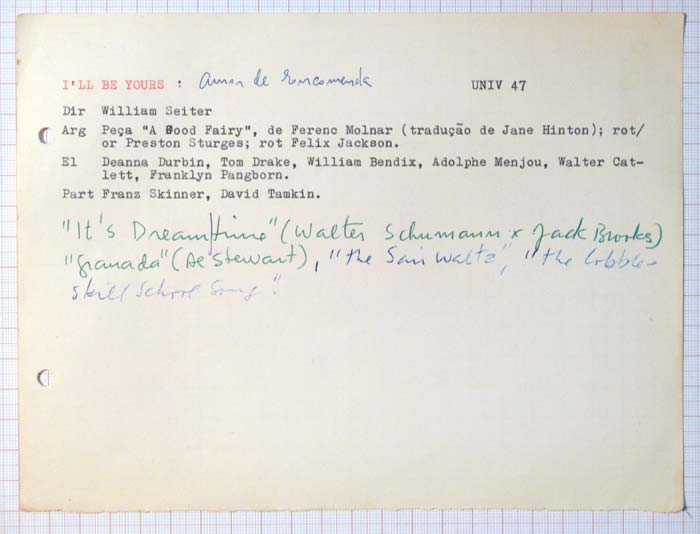 I'LL BE YOURS : Amor de Encomenda UNIV 47
Dir William Seiter
Arg Peça "A Good Fairy", de Ferenc Molnar (tradução de Jane Hinton); rot/
or Preston Sturges; rot Felix Jackson.
El Deanna Durbin, Tom Drake, William Bendix, Adolphe Menjou, Walter Cat-
lett, Franklyn Pangborn.
Part Franz Skinner, David Tamkin.
"It's Dreamtime" (Walter Schumann x Jack Brooks)
"Granada" (de Stewart), "the Sari Waltz", "the Cobble-
skill School Song".